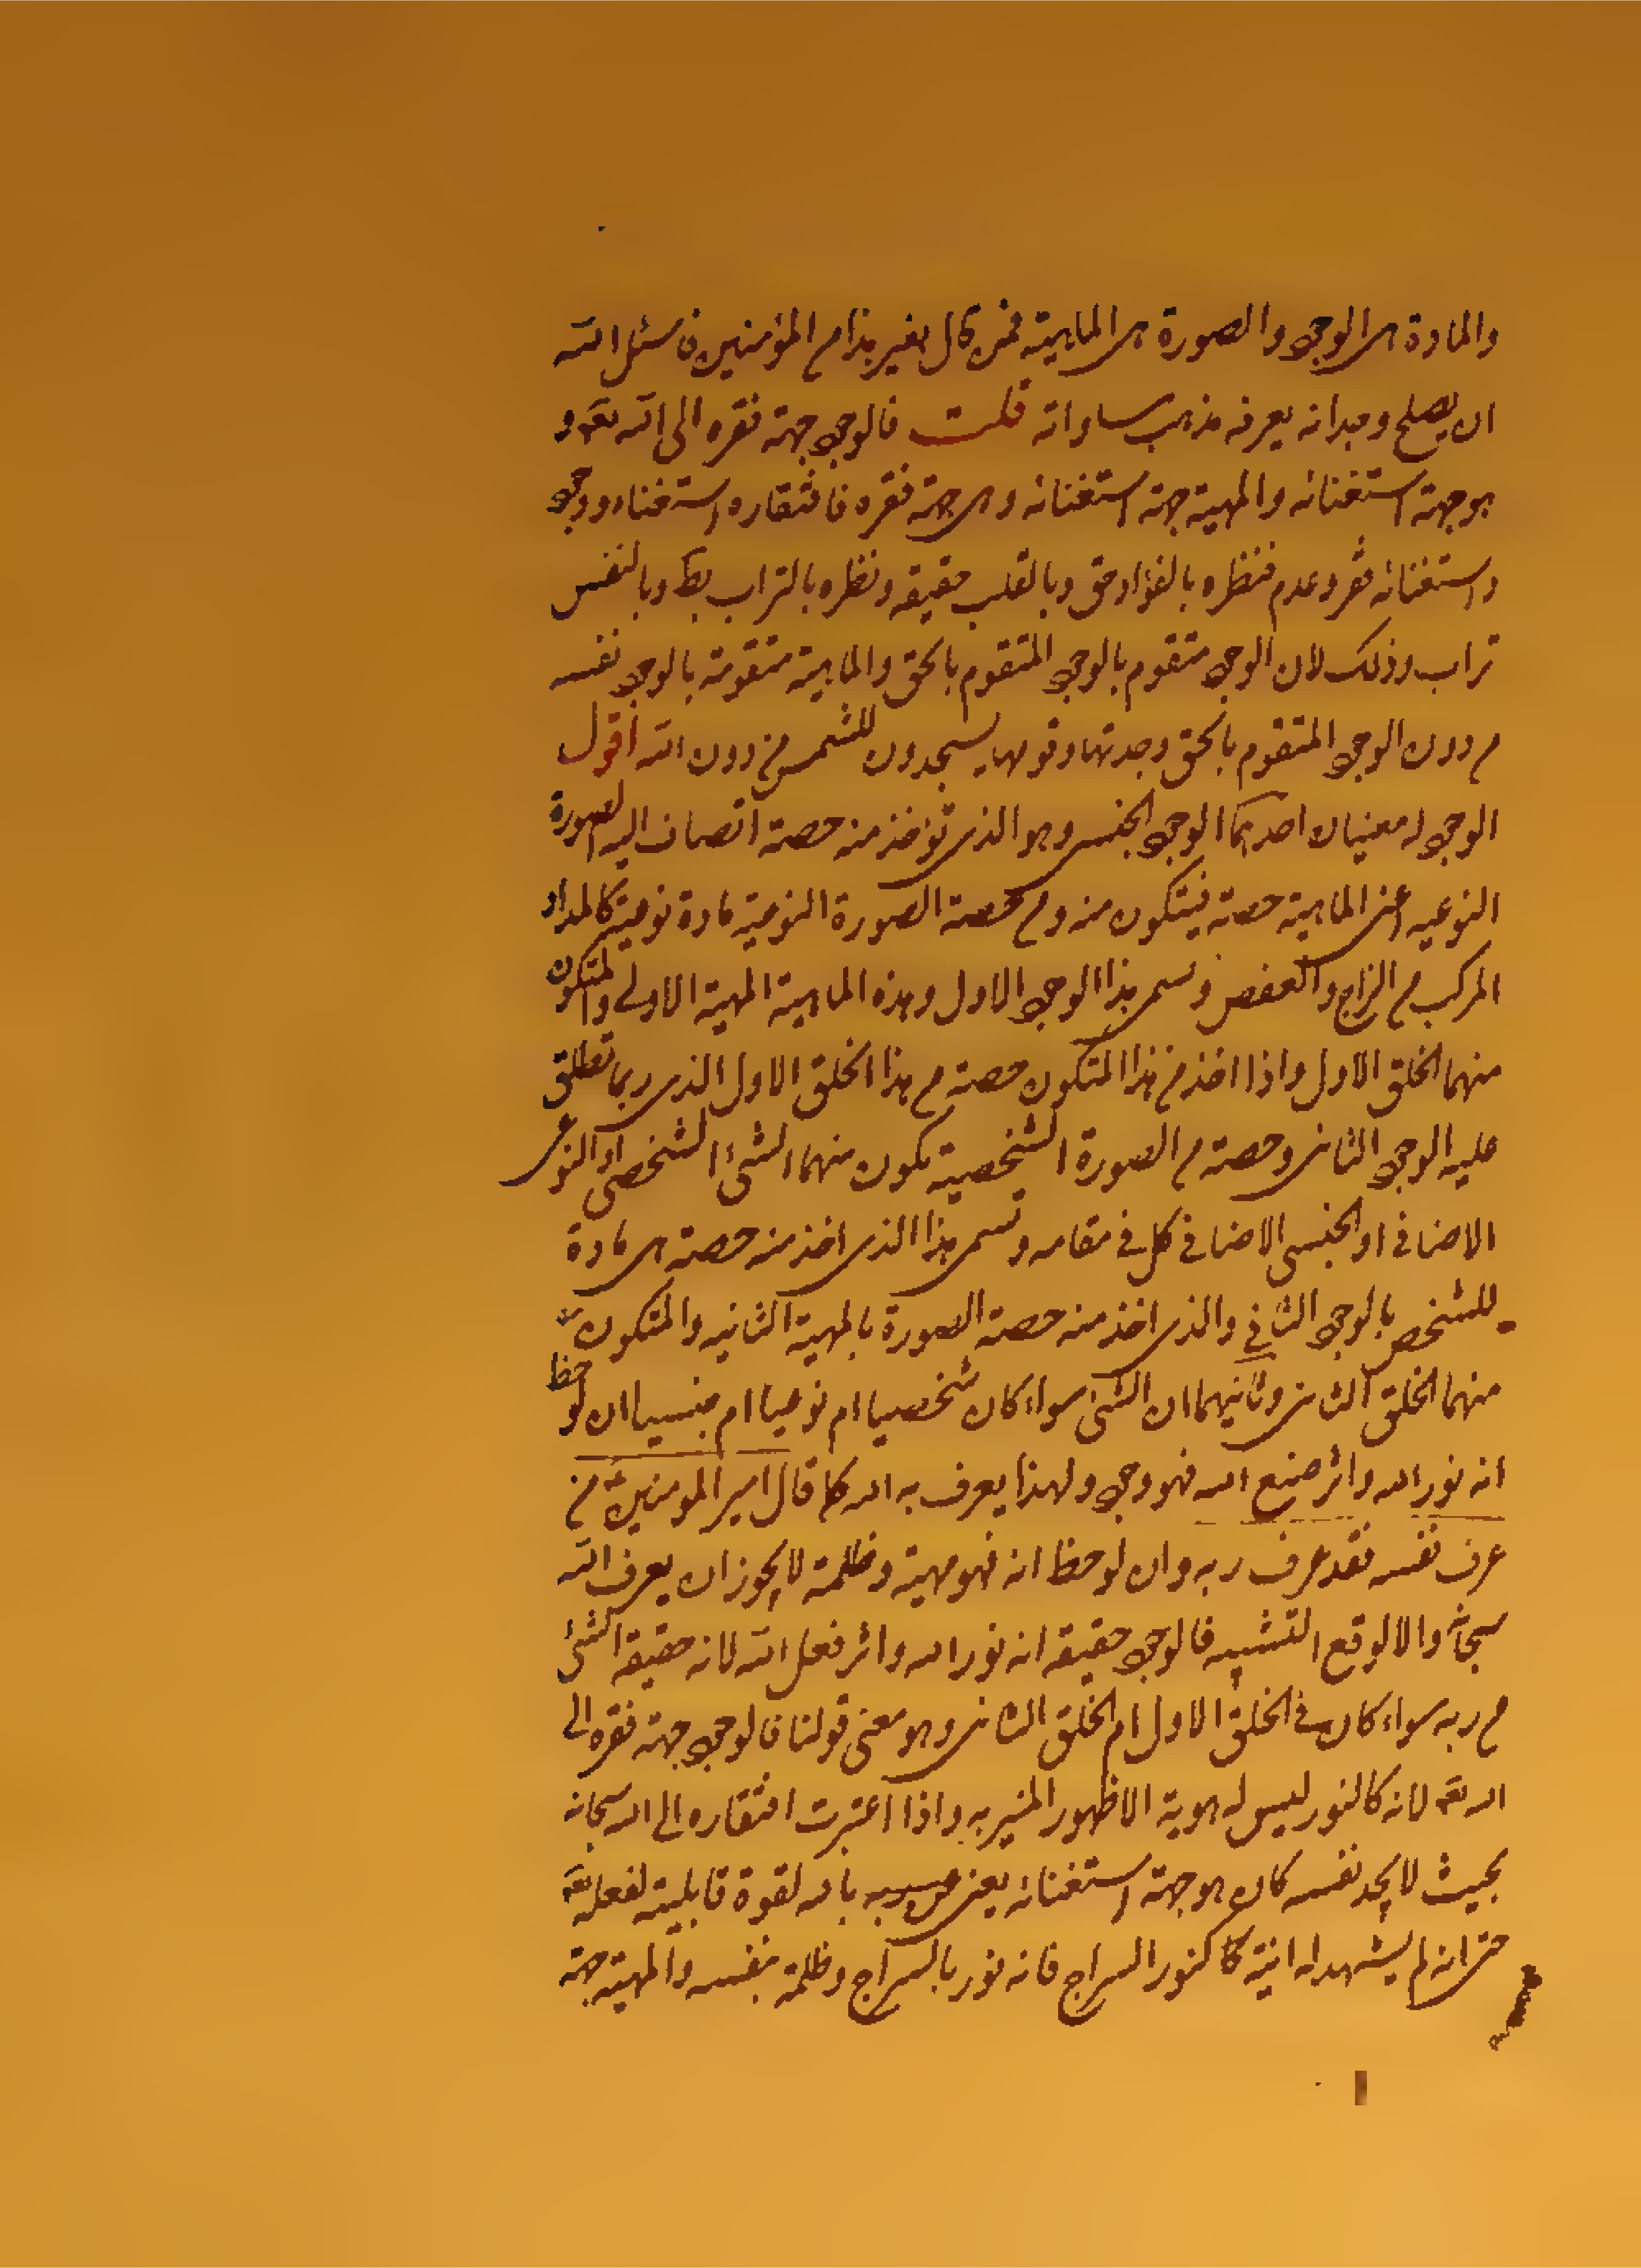 والمادة هى الوجود والصورة هى الماهية فمن قال بغير هذا من المؤمنين فاسئل الله
ان يصلح وجدانه يعرفه مذهب ساداته قلت فالوجود جهة فقره الى الله تعه و
هو جهة استغنائه والمهية جهة استغنائه وهى جهة فقره فافتقاره استغناء ووجود
واستغنائه فقر وعدم فنظره بالفؤاد حق وبالقلب حقيقه ونظره بالتراب بط وبالنفس
تراب وذلك لان الوجود متقوم بالوجود المتقوم بالحق والماهية متقومة بالوجود نفسه
من دون الوجود المتقوم بالحق وجدتها وقومها يسجدون للشمس من دون الله اقول
الوجود له معنيان احدهما الوجود الجنسى وهو الذى تؤخذ منه حصة اتصاف اليه الصورة
النوعيه اعنى الماهية حصة فيتكون منه ومن حصة الصورة النوعية مادة نوعية كالمداد
المركب من الزاج والعفص ونسمى هذا الوجود الاول وهذه الماهية المهية الاولى والمتكون
منهما الخلق الاول واذا اخذ من هذا المتكون حصة من هذا الخلق الاول الذى ربما تطلق
عليه الوجود الثانى وحصة من الصورة الشخصية تكون منهما الشئ الشخصى او النوعى
الاضافى او الجنسى الاضافى كل فى مقامه ونسمى هذا الذى اخذ منه حصة هى مادة
للشخص بالوجود الثانى والذى اخذ منه حصة الصورة بالمهية الثانيه والمتكون
منهما الخلق الثانى وثانيهما ان الشئ سواء كان شخصيا ام نوعيا ام جنسيا ان لوحظ
انه نور الله واثر صنع الله فهو وجود ولهذا يعرف به الله كما قال امير المومنين ع من
عرف نفسه فقد عرف ربه وان لوحظ انه فهو مهية وظلمة لا يجوز ان يعرف الله
سبحانه والا لوقع التشبيه فالوجود حقيقة انه نور الله واثر فعل الله لانه حقيقة الشئ
من ربه سواء كان فى الخلق الاول ام الخلق الثانى وهو معنى قولنا فالوجود جهة فقره الى
الله تعه لانه كالنور ليس له هوية الا ظهور المنير به واذا اعتبرت افتقاره الى الله سبحانه
بحيث لا يجد نفسه كان هو جهة استغنائه يعنى بالله لقوة قابلية لفعله تعه
حتى انه لم يشهد له انية كنور السراج فانه نور بالسراج وظلمة بنفسه والمهية جهة